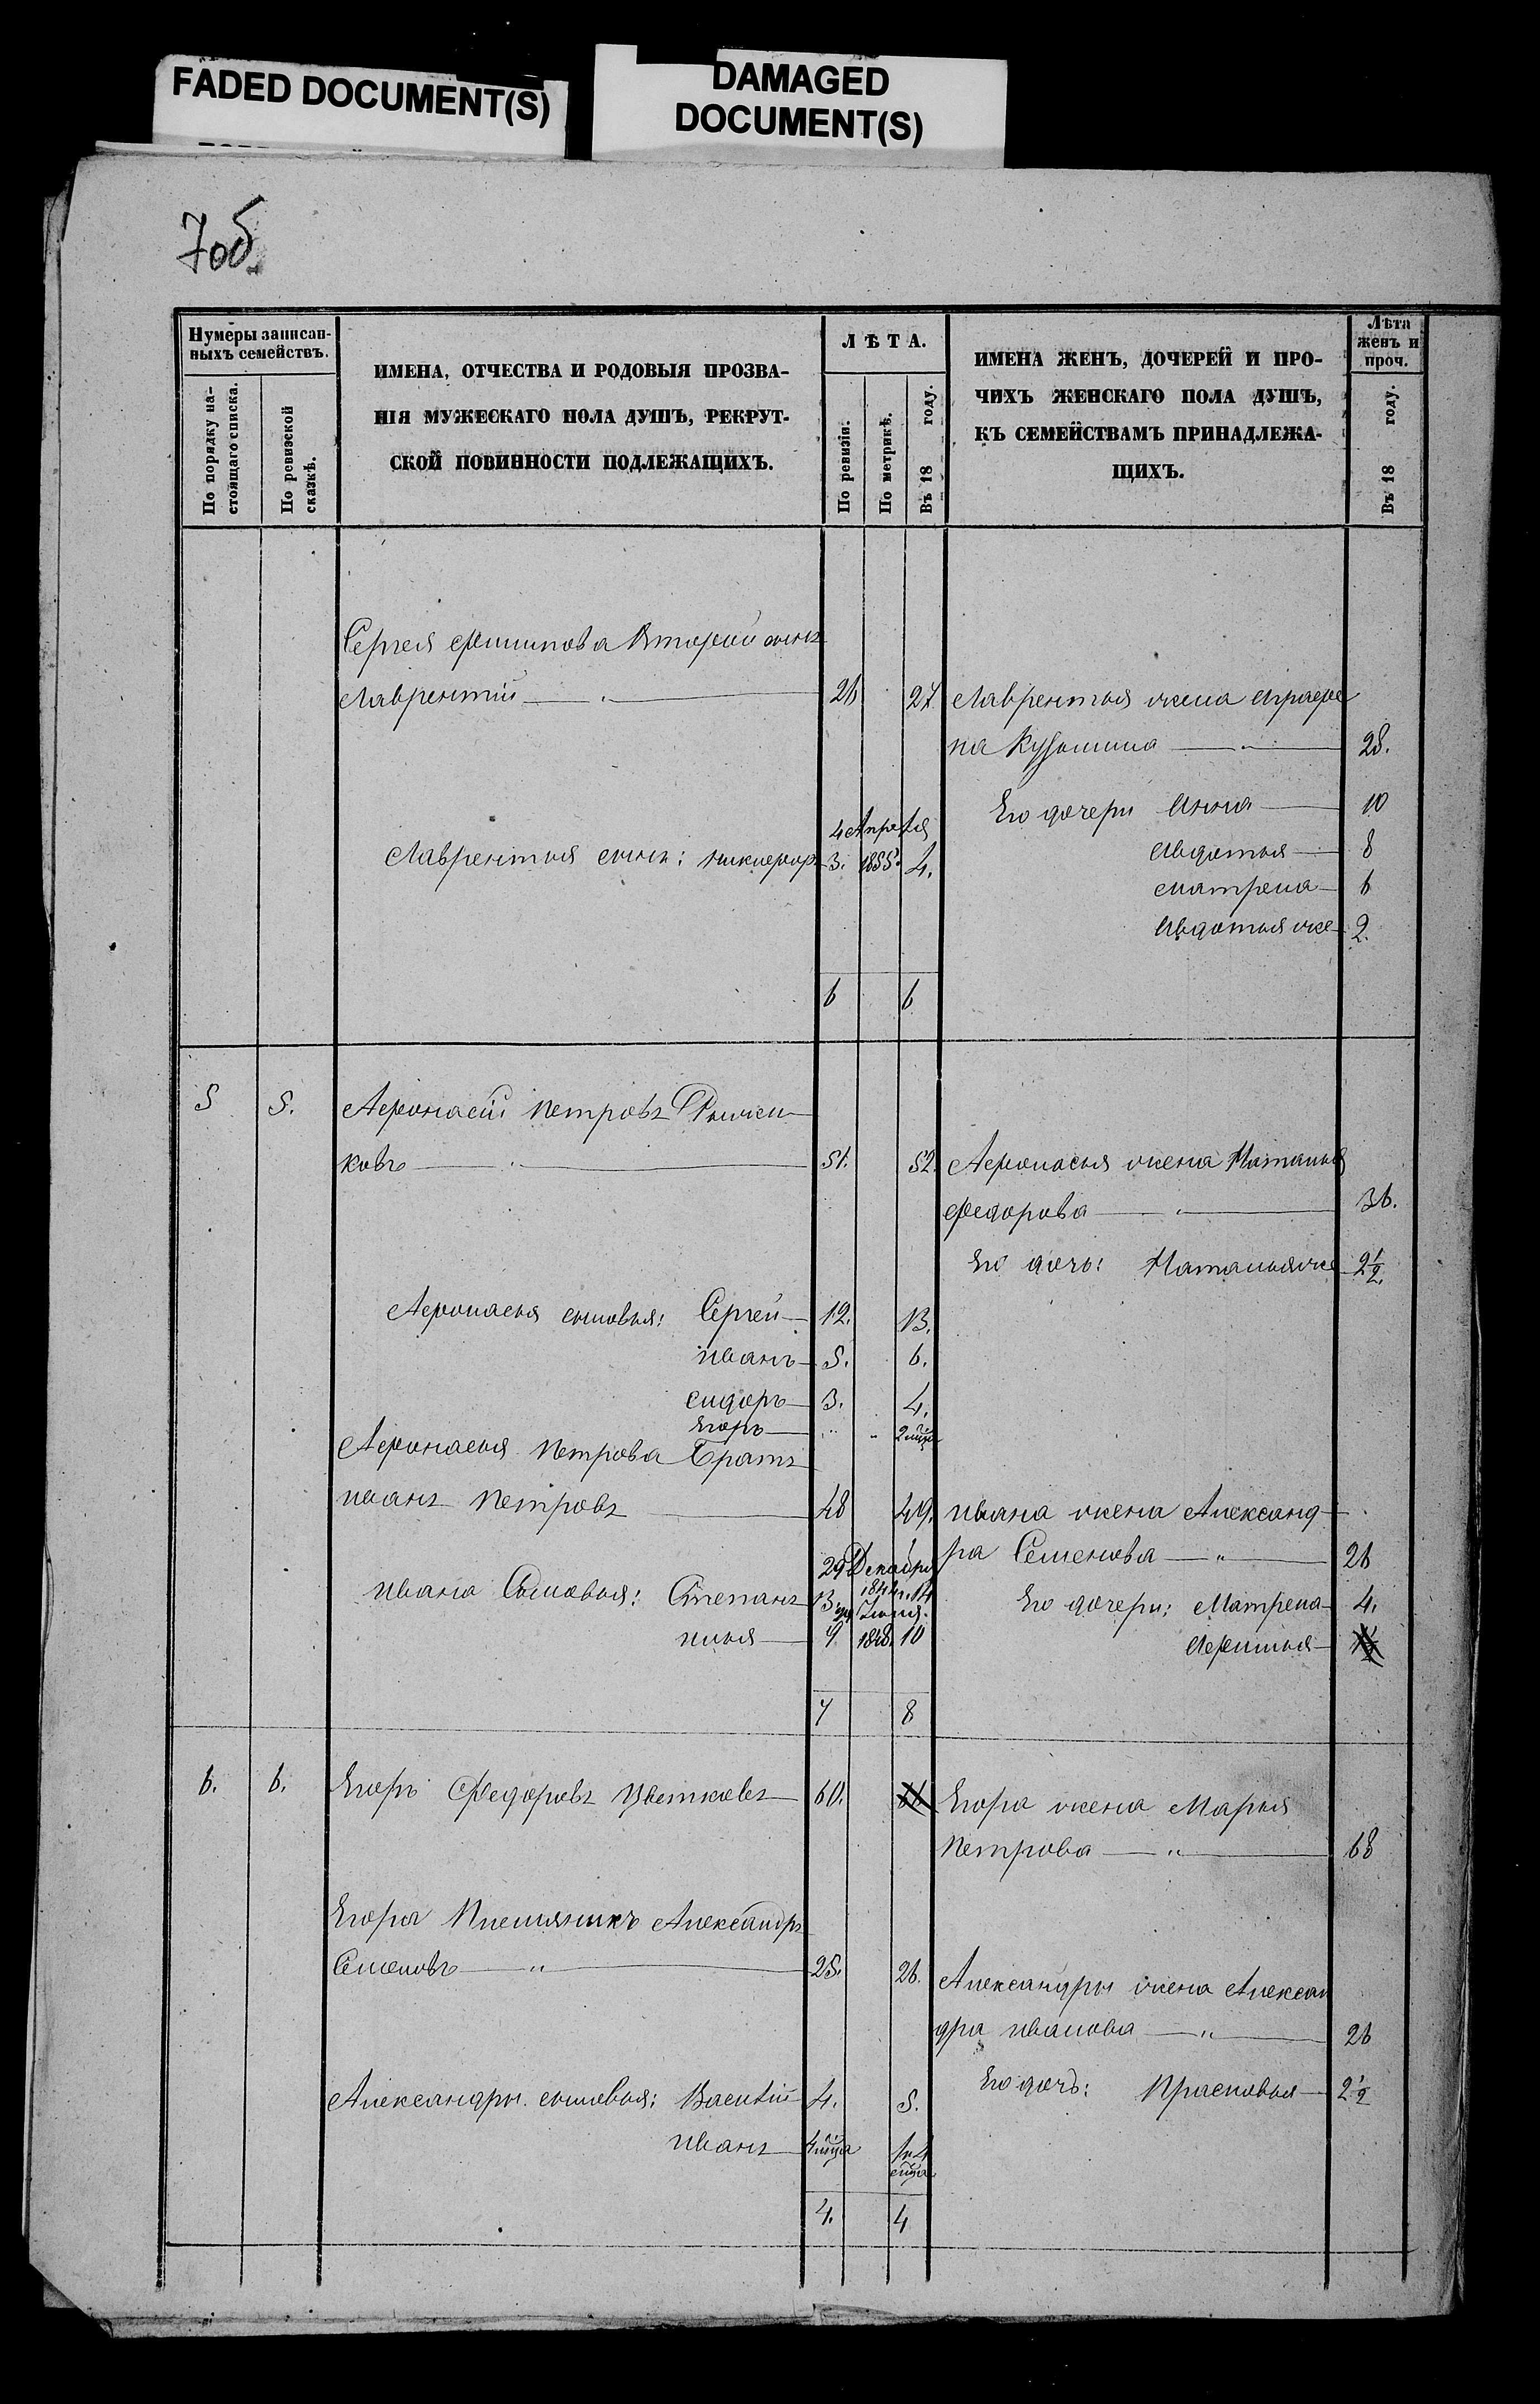 FADED DOCUMENT(S)
DAMAGED
DOCUMENT(S)
7об.
Нумеры записан-
ныхъ семействъ.
По порядку на-
стоящаго списка.
По ревизской
сказкѣ.
ИМЕНА, ОТЧЕСТВА И РОДОВЫЯ ПРОЗВА-
НІЯ МУЖЕСКАГО ПОЛА ДУШЪ, РЕКРУТ-
СКОЙ ПОВИННОСТИ ПОДЛЕЖАЩИХЪ.
ЛѢТА.
По ревизіи.
По метрикѣ.
Въ 18 году.
ИМЕНА ЖЕНЪ, ДОЧЕРЕЙ И ПРО-
ЧИХЪ ЖЕНСКАГО ПОЛА ДУШЪ,
КЪ СЕМЕЙСТВАМЪ ПРИНАДЛЕЖА-
ЩИХЪ.
Лѣта
женъ и
проч.
Въ 18 году.
Сергея Филипова Второй сынъ
Лаврентій 26 27. Лаврентья жена Аграфе
на Кузьмина 28.
Его дочери Анна 10
4 Апреля
Авдотья 8
Лаврентья сынъ: Никифоръ 3. 1855. 4.
Матрена 6
Авдотья же 2.
6 6
5 5. Афонасій Петровъ
ковъ 51. 52. Афонасья жена Наталья
Федорова 36.
Его дочь: Наталья же 2 1/2.
Афонасья сыновья: Сергей 12. 13.
Иванъ 5. 6.
Сидоръ 3. 4.
Егоръ " " 2 мѣся
Афонасья Петрова Братъ
Иванъ Петровъ 48 49. Ивана жена Александ-
ра Семенова 26
29 Декабря
Ивана Сыновья: Степанъ 13 1844. 14
Его дочери: Матрена 4.
Іюня.
Илья 9 1848. 10
Афимья
7 8
6. 6. Егоръ Федоровъ Цветковъ 60. Егора жена Марья
Петрова 68
Егора Племянникъ Александръ
Семеновъ 25. 26. Александры жена Алексан
дра Иванова 26
Его дочь: Прасковья 2 1/2
Александры сыновья: Василій 4. 5.
Иванъ 4 мѣца 1 и 4
мѣца
4. 4